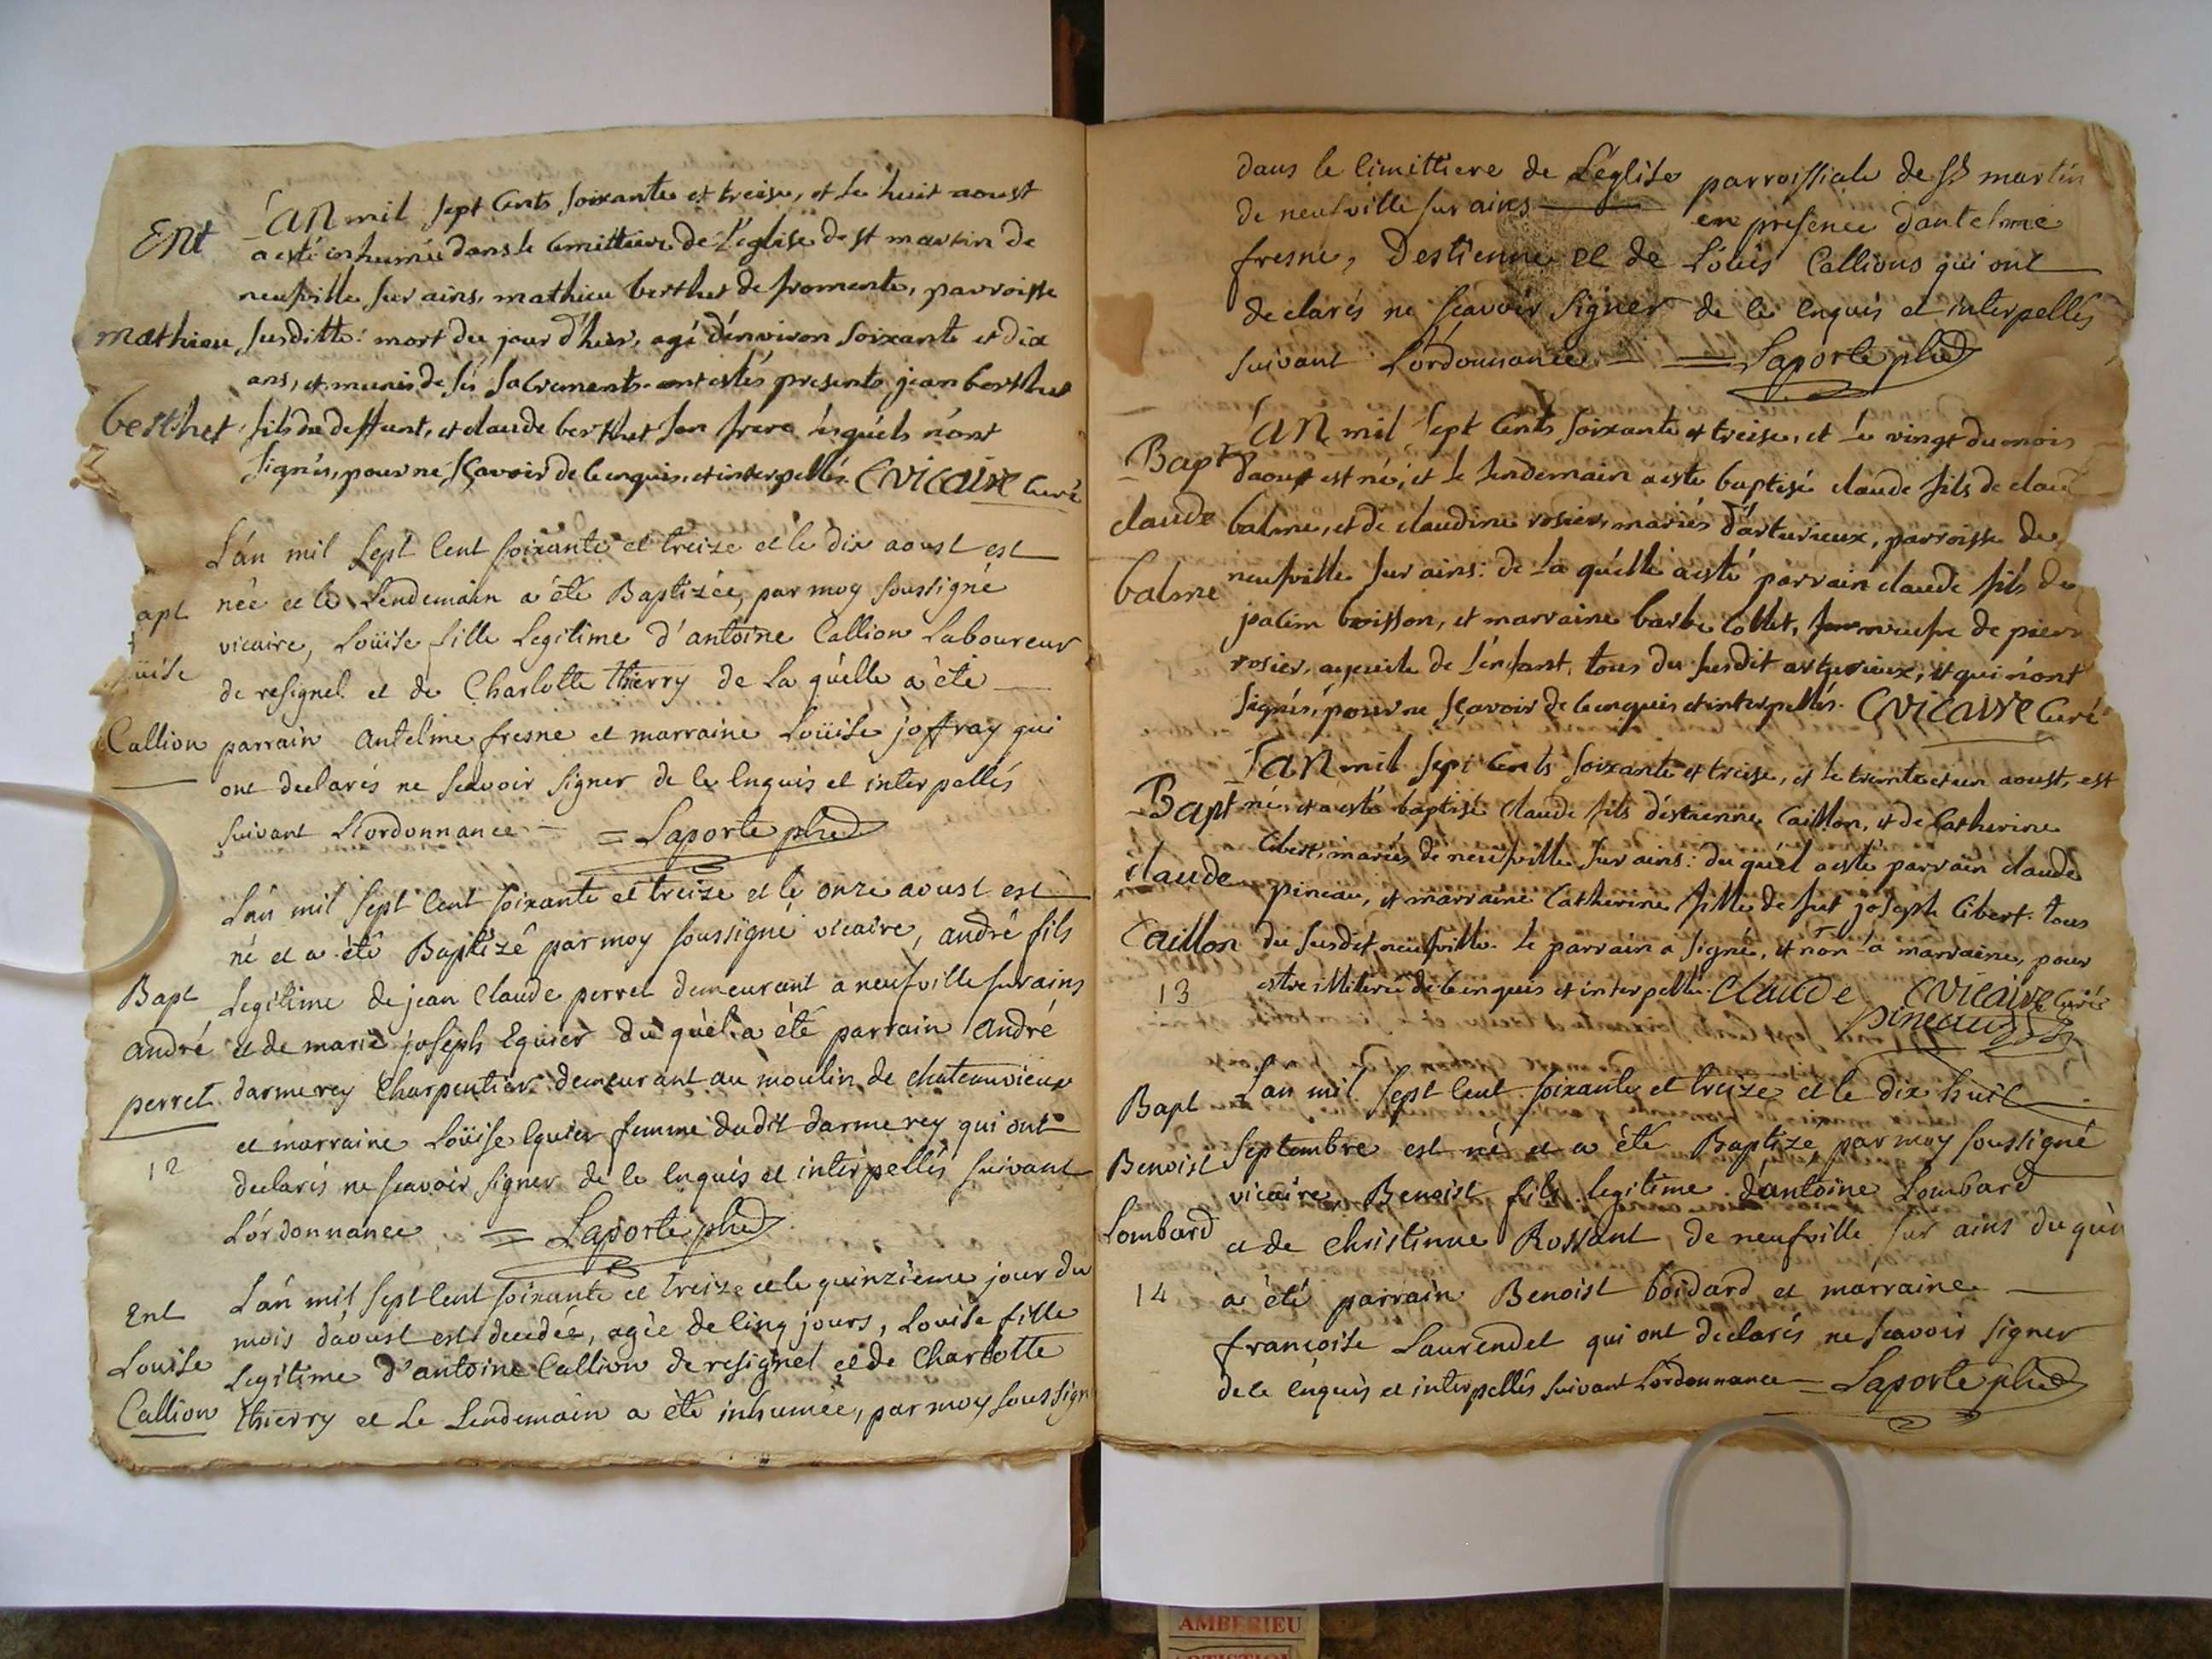 Ent
L'AN mil sept cents soixante et treise, et le huit aoust
a esté inhumé dans le cimittiere de l'eglise de st martin de
neufville sur ains, mathieu berthet de fromente, parroisse
mathieu susditte: mort du jour d'hier, agé d'environ soixante et dix
ans, et munis de ses sacrements. ont estés presents jean berthet
berthet fils du deffunt, et claude berthet son frere lesquels n'ont
signés, pour ne sçavoir de ce enquis, et interpellés. CVICAIRE curé
L'an mil sept cent soixante et treize et le dix aoust est
apt née et le lendemain a été Baptizée, par moy soussigné
vicaire, Loüise fille legitime d'antoine Callion Laboureur
üise de resignel et de Charlotte thierry de la quelle a été
Callion parrain antelme fresne et marraine Loüise joffray qui
ont declarés ne scavoir signer de ce enquis et interpellés
suivant L'ordonnance = Laporte
L'an mil sept cent soixante et treize et le onze aoust est
né et a été Baptizé par moy soussigné vicaire, andré fils
Bapt Legitime de jean Claude perret demeurant a neufville sur ains
andré et de marie joseph Eguier du quel a été parrain André
perret darmerey Charpentier demeurant au moulin de chateauvieux
et marraine Loüise Eguier femme dudit darmerey qui ont
12 declarés ne scavoir signer de ce enquis et interpellés suivant
L'ordonnance = Laporte
Ent L'an mil sept cent soixante et treize et le quinzieme jour du
mois d'aoust est decedée, agée de cinq jours, Louise fille
Louise Legitime d'antoine Callion de resignel et de Charlotte
Callion thierry et le Lendemain a été inhumée, par moy soussign
dans le cimittiere de L'eglise parroissiale de st martin
de neufville sur ains en presence d'antelme
fresne, Destienne et de Loüis Callions qui ont
declarés ne scavoir signer de ce enquis et interpellés
suivant L'ordonnance = Laporte
L'AN mil sept cents soixante et treise, et le vingt du mois
Bapt d'aoust est né, et le lendemain a esté baptisé claude fils de clau
claude balme, et de claudine rosier, mariés d'arturieux, parroisse de
balme neufville sur ains: de la quelle a esté parrain claude fils de
boisson, et marraine barbe collet, veufve de pierr
rosier, ayeule de l'enfant, tous du susdit arturieux, et qui n'ont
signés, pour ne sçavoir de ce enquis et interpellés. CVICAIRE curé
L'AN mil sept cents soixante et treise, et le trente et un aoust, est
Bapt né et a esté baptisé claude fils d'estienne Caillon, et de Catherine
Cibert, mariés de neufville sur ains: du quel a esté parrain claude
claude pineau, et marraine Catherine fille de fut joseph Cibert. tous
Caillon du susdit neufville. le parrain a signé, et non la marraine, pour
13 estre illiterée de ce enquis et interpellée. Claude CVICAIRE curé
pineau
Bapt L'an mil sept cent soixante et treize et le dix huit
Benoist septembre est né et a été Baptizé par moy soussigné
vicaire, Benoist fils legitime d'antoine Lombard
Lombard et de christinne Rossant, de neufville sur ains du que
14 a été parrain Benoist boidard et marraine
françoise Laurendet qui ont declarés ne scavoir signer
de ce enquis et interpellés suivant L'ordonnance = Laporte
AMBERIEU